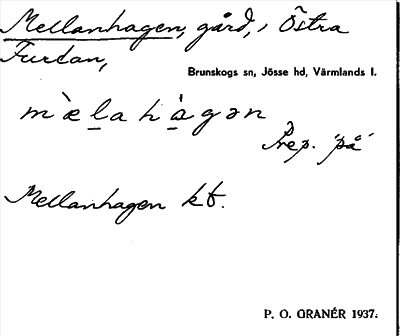 Mellanhagen, gård, i Östra
Furtan,
Brunskogs sn, Jösse hd, Värmlands l.
mæ̀la hàgən
Prep. 'på'
Mellanhagen kt.
P. O. GRANÉR 1937.